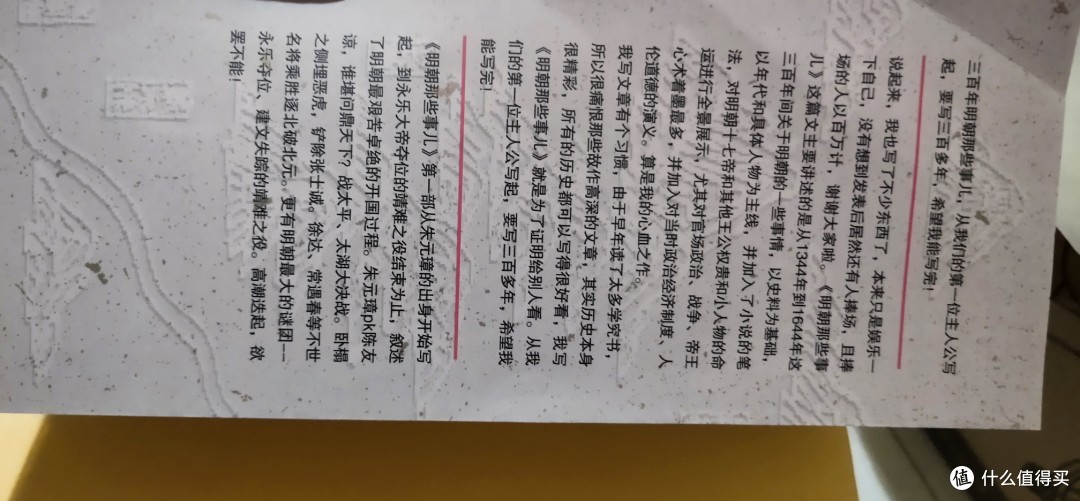 三百年明朝那些事儿，从我们的第一位主人公写
起，要写三百多年，希望我能写完！
说起来，我也写了不少东西了，本来只是娱乐一
下自己，没有想到发表后居然还有人捧场，且捧
场的人以百万计，谢谢大家啦。《明朝那些事
儿》这篇文主要讲述的是从1344年到1644年这
三百年间关于明朝的一些事情，以史料为基础，
以年代和具体人物为主线，并加入了小说的笔
法，对明朝十七帝和其他王公权贵和小人物的命
运进行全景展示，尤其对官场政治、战争、帝王
心术着墨最多，并加入对当时政治经济制度、人
伦道德的演义。算是我的心血之作。
我写文章有个习惯，由于早年读了太多学究书，
所以很痛恨那些故作高深的文章，其实历史本身
很精彩，所有的历史都可以写得很好看，我写
《明朝那些事儿》就是为了证明给别人看。从我
们的第一位主人公写起，要写三百多年，希望我
能写完！
《明朝那些事儿》第一部从朱元璋的出身开始写
起，到永乐大帝夺位的靖难之役结束为止，叙述
了明朝最艰苦卓绝的开国过程。朱元璋pk陈友
谅，谁堪问鼎天下？战太平、太湖大决战。卧榻
之侧埋恶虎，铲除张士诚。徐达、常遇春等不世
名将乘胜逐北破北元。更有明朝最大的谜团——
永乐夺位、建文失踪的靖难之役。高潮迭起，欲
罢不能！
值 什么值得买